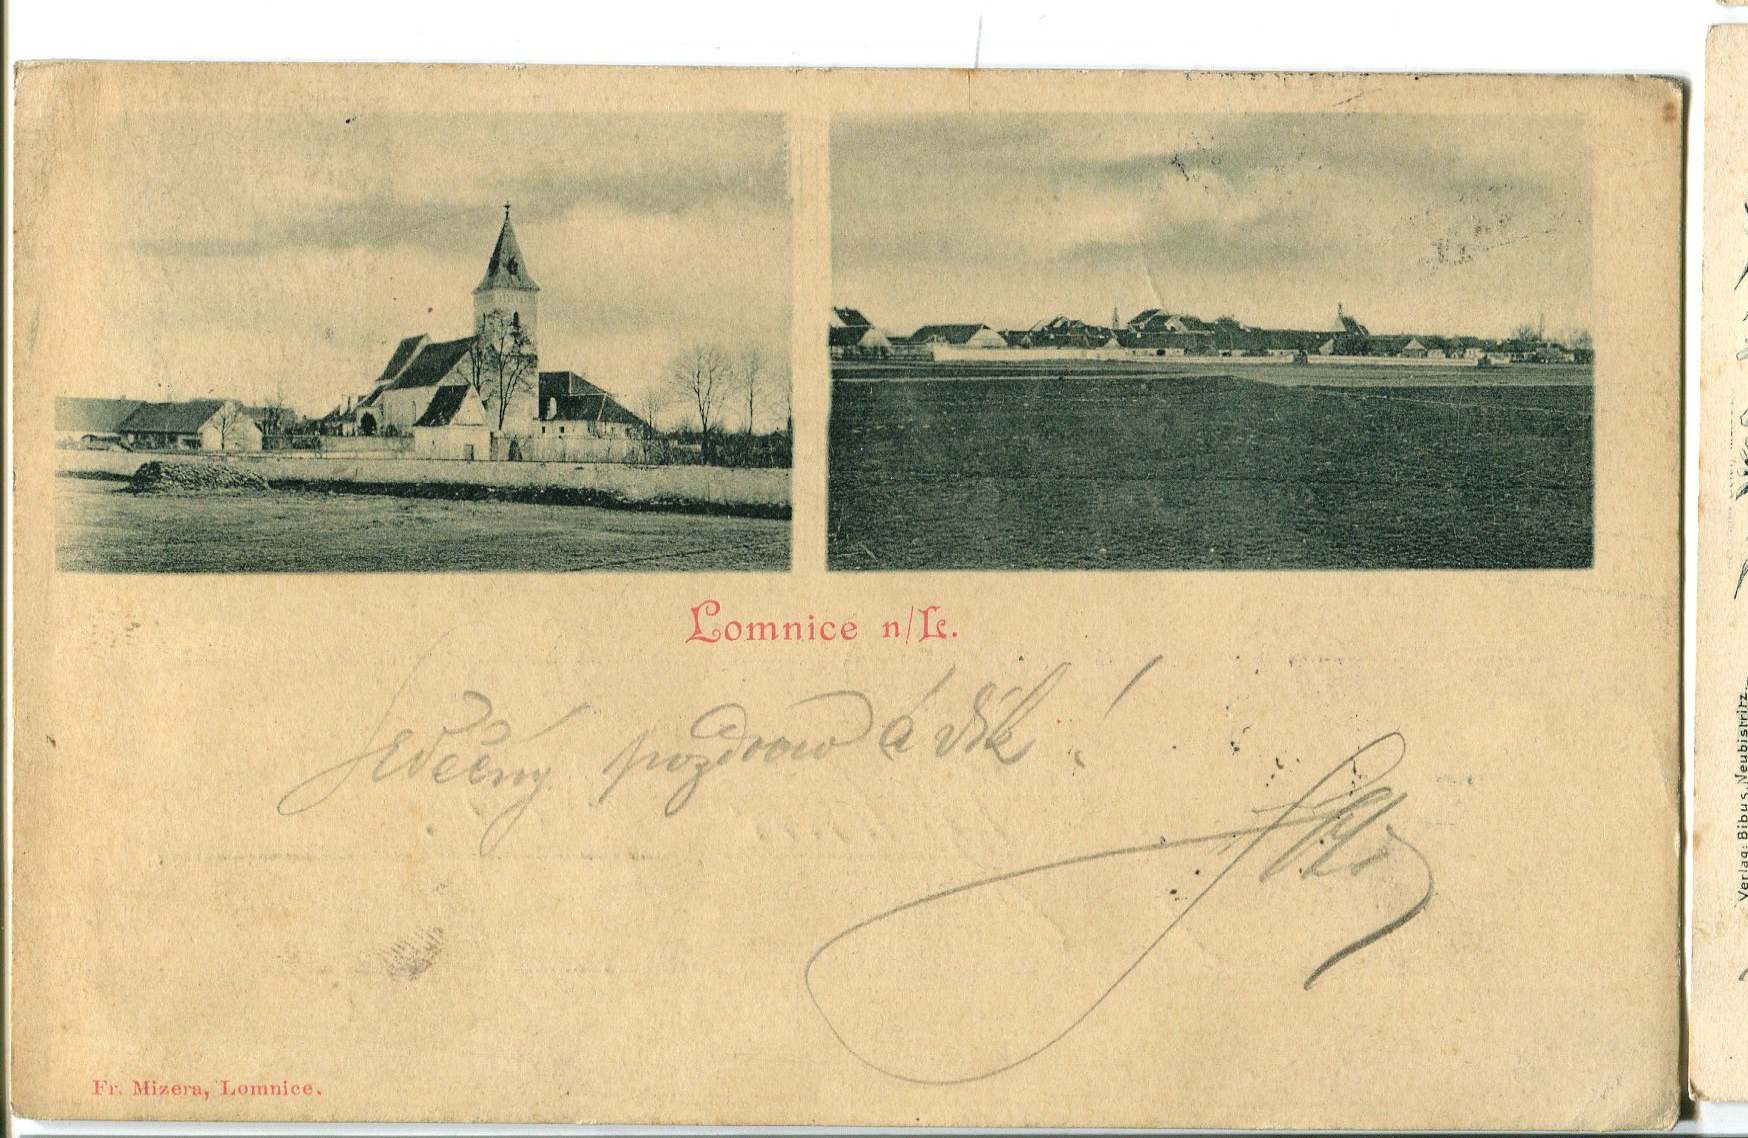 Lomnice n/L.
Srdečný pozdrav a dík!
Fr. Mizera, Lomnice.
Verlag: Bibus, Neubistritz